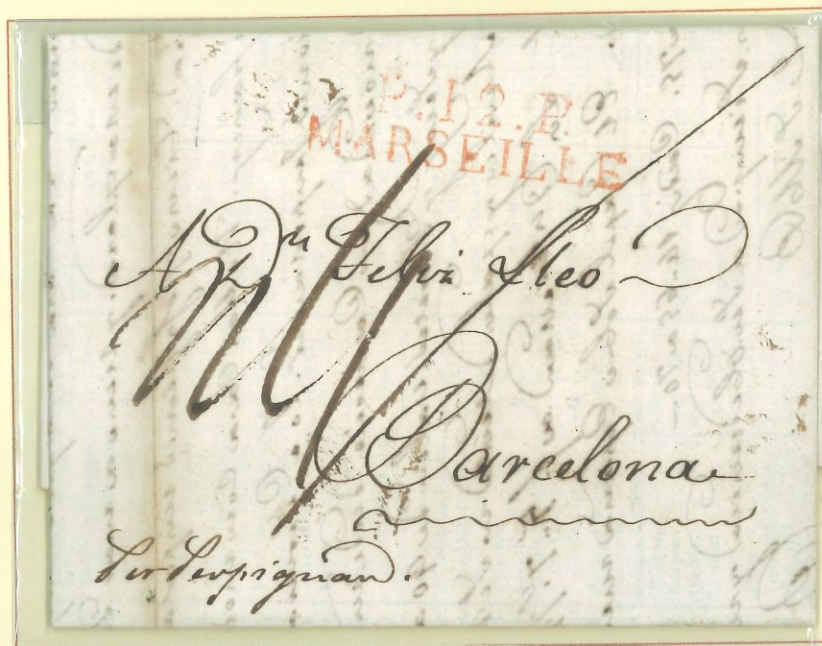 P.12.P.
MARSEILLE
A Dn Felix Lleo
Barcelona
Per Perpignan.